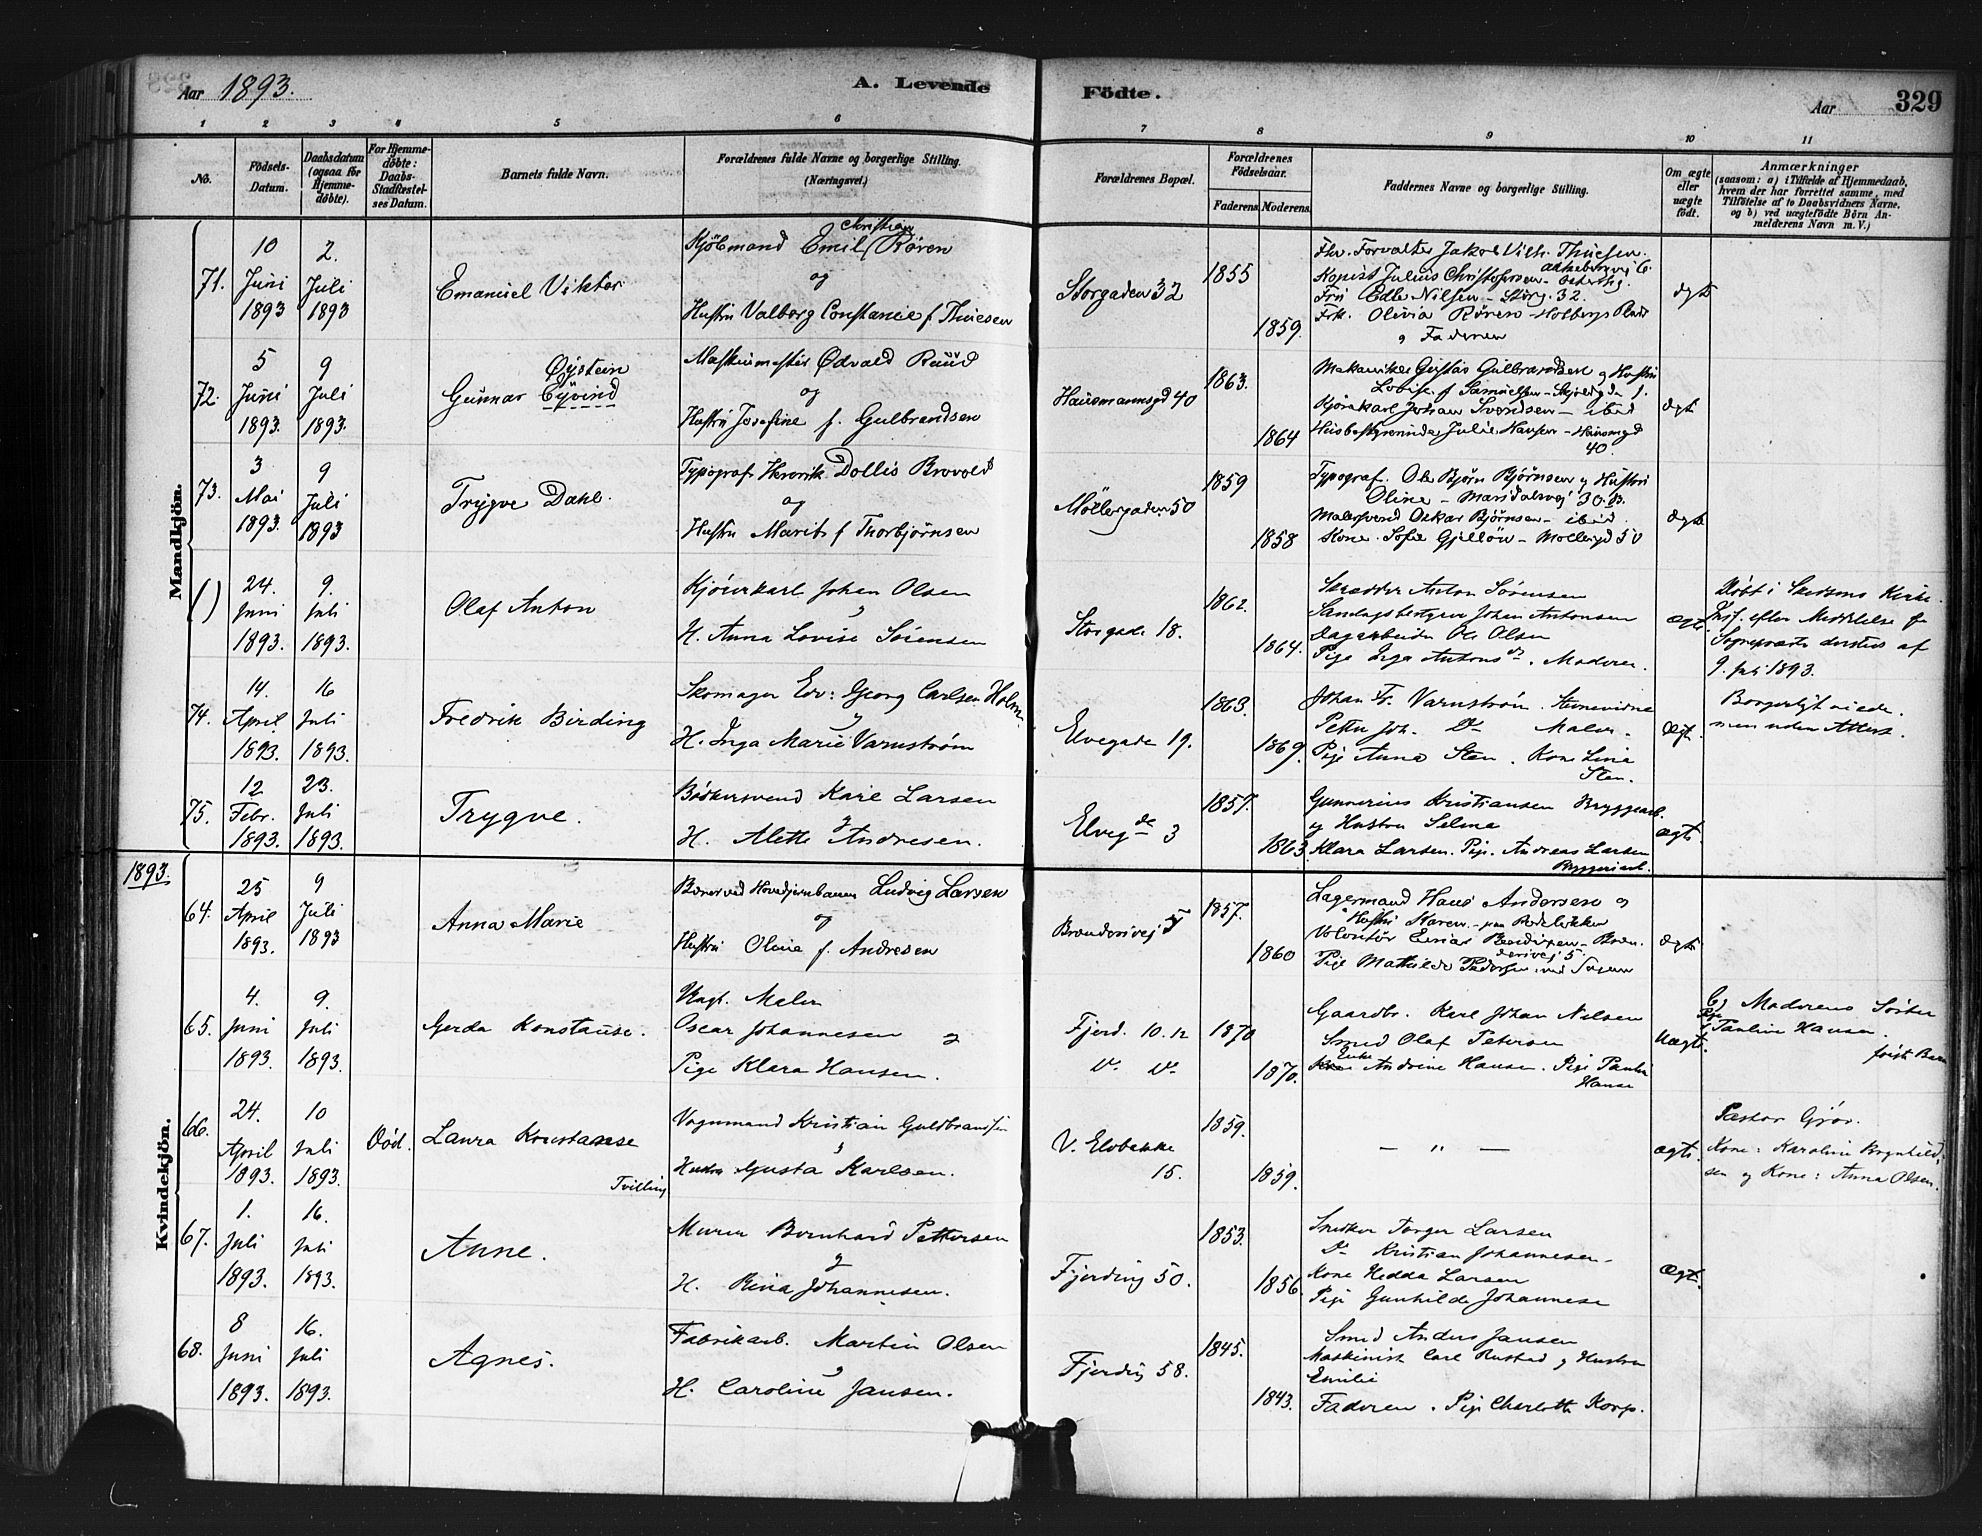 Aar 1893.
A. Levende Födte.
Aar
329
1 2 3 4 5 6 7 8 9 10 11
No.
Födsels-Datum.
Daabsdatum (ogsaa för Hjemme-döbte).
For Hjemme-döbte: Daabs-Stadfæstel-ses Datum.
Barnets fulde Navn.
Forældrenes fulde Navne og borgerlige Stilling. (Næringsvei.)
Forældrenes Bopæl.
Forældrenes Födselsaar.
Faderens. Moderens.
Faddernes Navne og borgerlige Stilling.
Om ægte eller uægte födt.
Anmærkninger
(saasom: a) i Tilfælde af Hjemmedaab, hvem der har forrettet samme, med Tilföielse af to Daabsvidners Navne, og b) ved uægtefödte Börn An-melderens Navn m. V.)
Mandkjön.
71. 10 Juni 1893 2. Juli 1893
Emanuel Viktor
Kjöbmand Emil Christian Røren
og
Hustru Valborg Constance f Thuesen
Storgaden 32
1855
1859.
Fhv. Forvalter Jakob Vilh. Thuesen.
Kopist Julius Christofersen
Edle Nilsen – Storg. 32.
Frk. Olivia Røren – Holbergs Plads
og Faderen
ægte
72. 5 Juni 1893. 9 Juli 1893.
Gunnar Øystein Eyvind
Maskinmester Odvald Ruud
og
Hustru Josefine f. Gulbrandsen
Hausmannsgd 40
1863.
1864
Mekaniker Gustav Gulbrandsen og Hustru
Lovise f Samuelsen
Kjørekarl Johan Svendsen – ibid
Husbestyrerinde Julie Hansen – Hausmgd
40.
ægte
73. 3 Mai 1893. 9 Juli 1893
Trygve Dahl.
Typograf Henrik Dollis Brovold
og
Hustru Marit f Thorbjørnsen
Möllergaden 50
1859
1858
Typograf. Ole Bjørn Bjørnsen og Hustru
Oline – Maridalsvej 30.B.
Malersvend Oskar Bjørnsen – ibid.
Kone Sofie – Mollergd 50
ægte
( ) 24. Juni 1893. 9. Juli 1893.
Olaf Anton
Kjörekarl Johan Olsen
og
H. Anna Lovise Sörensen
Storgade 18.
1862.
1864.
Skrædder Anton Sørensen
Johan Antonsen
Dagarbeider Ole Olsen
Pige Inga Antons dr. Moderen.
ægte
Döbt i Kirke.
Indf. efter Meddelelse fr
Sognepræsten dersteds af
9. Juli 1893.
74. 14. April 1893. 16 Juli 1893.
Fredrik Birding
Skomager Edv: Georg Carlsen Holm
og
H. Inga Marie Varnström
Elvegade 19.
1863.
1869.
Johan F. Varnström.
Petter Joh. Do Maler.
Pige Anna Sten. Kone Lina
Sten.
ægt.
Borgerligt viede.
men uden Attest.
75. 12 Febr. 1893. 23. Juli 1893.
Trygve.
Bödkersvend Karl Larsen
og
H. Alette Andresen.
Elvegde 3
1857.
1863.
Gunnerius Kristiansen Bryggearb.
og Hustru Selma
Klara Larsen. Pige. Andreas Larsen
Bryggeriarb.
ægte
1893.
Kvindekjön.
64. 25 April 1893. 9 Juli 1893
Anna Marie
Ludvig Larsen
og
Hustru Oline f. Andresen
Brenderivej 5
1857.
1860
Lagermand Hans Andersen og
Hustru Karen – paa Rodeløkken
Pige Mathilde Pedersen
ægte
65. 4. Juni 1893. 9. Juli 1893.
Gerda Konstanse.
Ungk. Maler
Oscar Johannesen og
Pige Klara Hansen.
Fjerd. 10. 12
Do Do
1870
1870.
Gaardbr. Karl Johan Nilsen
Smed Olaf Petersen
Enke Andrine Hansen. Pige Paulin
Hanse
Uægte.
Moderens Söster
Pige Pauline Hansen.
först Barn
66. 24. April 1893. 10 Juli 1893.
Död.
Laura Konstanse
Tvilling
Vognmand Kristian Guldbrandsen
og
Hustru Gusta Karlsen.
V. Elvebakke
15.
1859.
1859.
– " –
ægte.
Pastor Gjör.
Kone: Karoline Bognhild-
sen og Kone: Anna Olsen.
67. 1. Juli 1893. 16. Juli 1893.
Anne.
Murer Bernhard Pettersen
og
H. Rina Johannesen.
Fjerding 50.
1853.
1856.
Snedker Torger Larsen
Do Kristian Johannesen.
Kone Hedda Larsen
Pige Gunhilde Johannese
ægt.
68. 8 Juni 1893. 16. Juli 1893.
Agnes.
Fabrikarb. Martin Olsen
og
H. Caroline Jansen.
Fjerding 58.
1845.
1843.
Smed Anders Jansen
Maskinist Carl Rustad og Hustru
Emilie
Faderen. Pige Charlotte Korp.